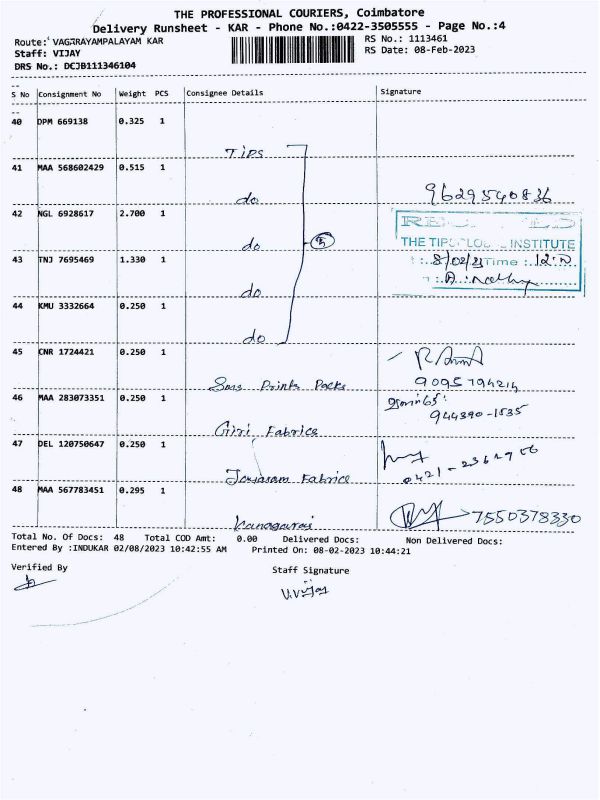 THE PROFESSIONAL COURIERS, Coimbatore
Delivery Runsheet - KAR - Phone No.:0422-3505555 - Page No.:4
Route: VAGARAYAMPALAYAM KAR
RS No.: 1113461
Staff: VIJAY
RS Date: 08-Feb-2023
DRS No.: DCJB111346104
S No Consignment No Weight PCS Consignee Details Signature
40 DPM 669138 0.325 1
Tips
41 MAA 568602429 0.515 1
do
9629540836
42 NGL 6928617 2.700 1
do
5
THE TIPS INSTITUTE
43 TNJ 7695469 1.330 1
8/02/23 Time :
do
44 KMU 3332664 0.250 1
do
45 CNR 1724421 0.250 1
Sms Prints Packs
9095794214
46 MAA 283073351 0.250 1
944390-1535
Giri Fabrics
47 DEL 120750647 0.250 1
Fabrice
48 MAA 567783451 0.295 1
Kanagaraj
7550378330
Total No. Of Docs: 48 Total COD Amt: 0.00 Delivered Docs: Non Delivered Docs:
Entered By :INDUKAR 02/08/2023 10:42:55 AM Printed On: 08-02-2023 10:44:21
Verified By
Staff Signature
V.Vijay